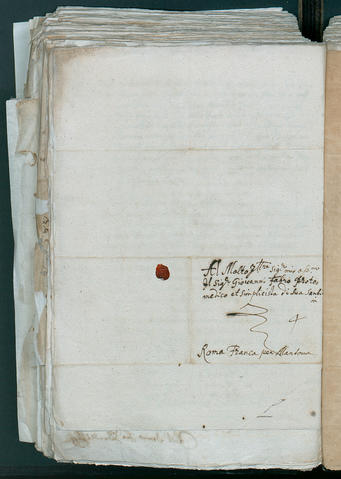 Al Molto Ill.tre Sig.r mio oss.mo
Il Sig.r Giovanni Fabro Proto
medico et simplicista di sua Santi
Roma Franca per Mantova